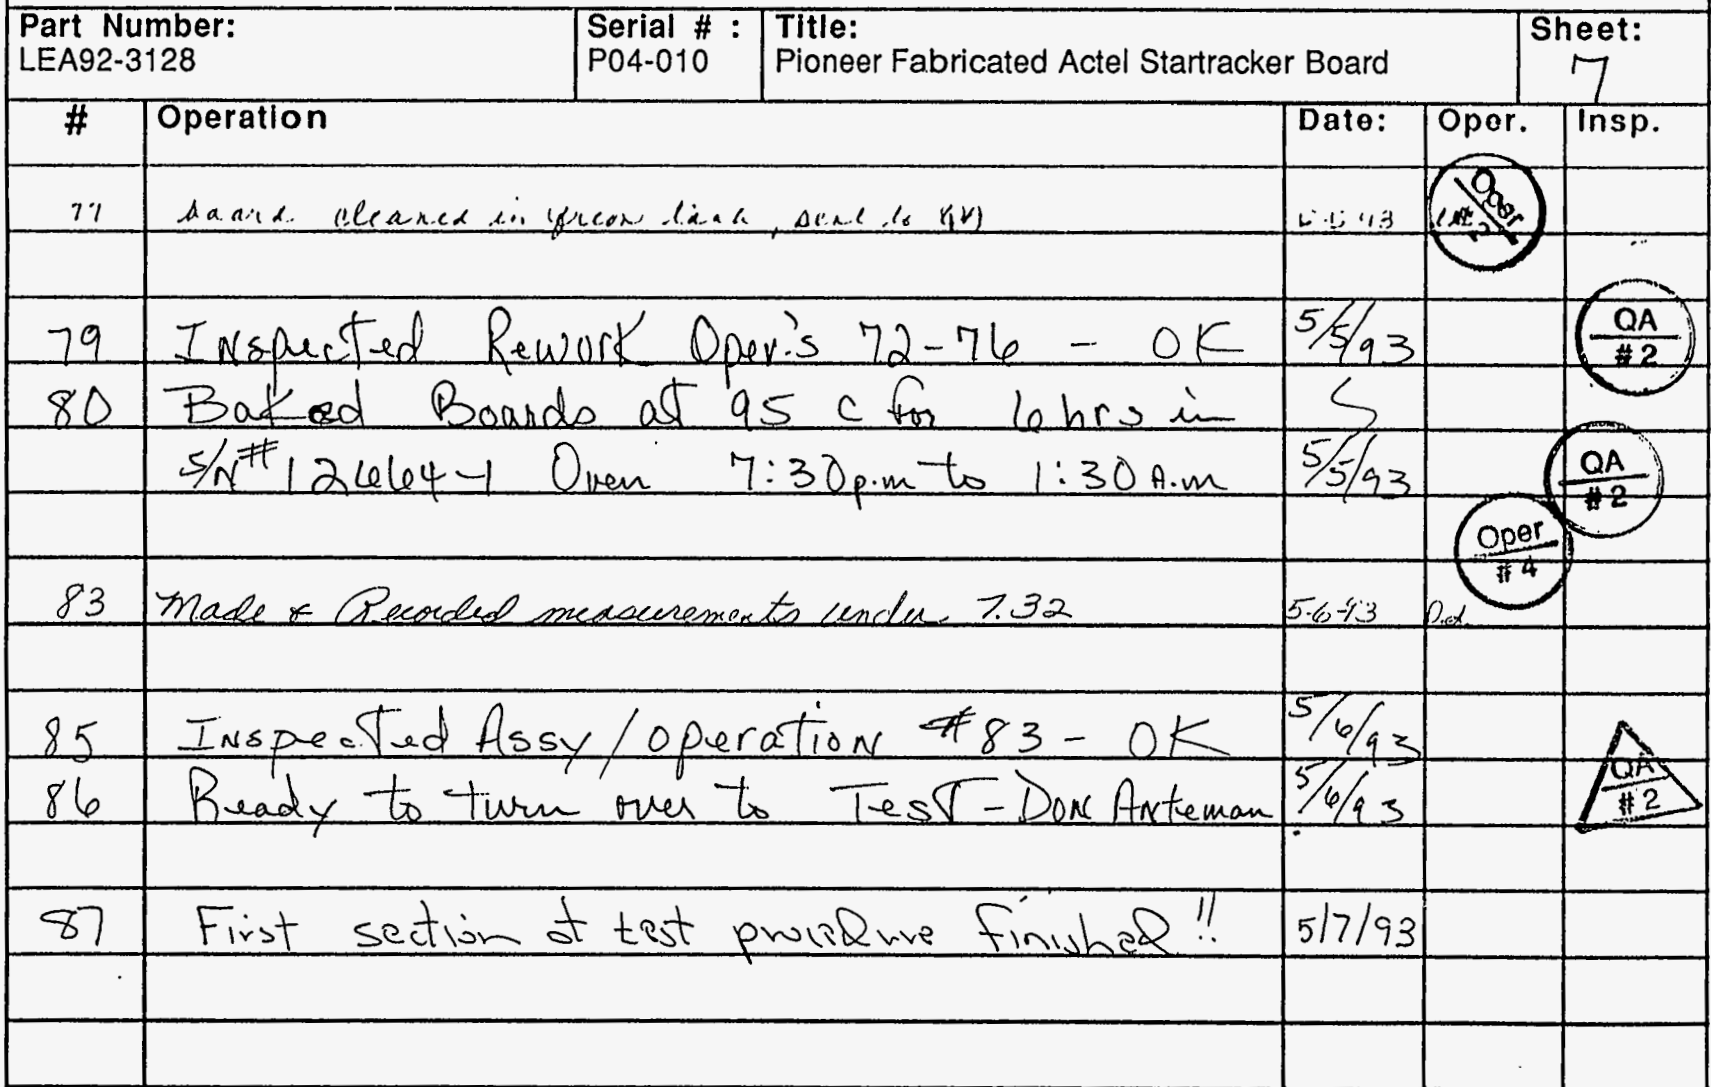 Part Number: Serial # : Title: Sheet:
LEA92-3128 P04-010 Pioneer Fabricated Actel Startracker Board 7
# Operation Date: Oper. Insp.
77 board cleaned in freon tank, sent to 93 Oper
79 Inspected Rework Oper.'s 72-76 - OK 5/5/93 QA #2
80 Baked Boards at 95 C for 6 hrs in
S/N# 12664-1 Oven 7:30 p.m to 1:30 A.m 5/5/93 QA #2
Oper #4
83 Made & Recorded measurements under 7.32 5-6-93
85 Inspected Assy/operation #83 - OK 5/6/93
86 Ready to turn over to Test - Don Arteman 5/6/93 QA #2
87 First section of test procedure finished!! 5/7/93